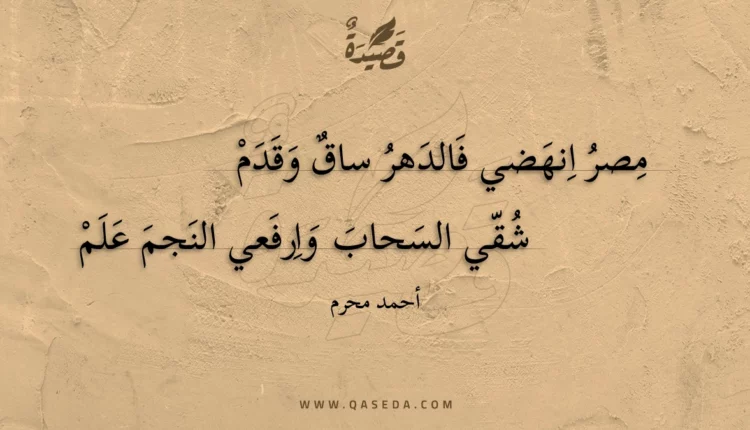 قَصِيدَةٌ
مِصرُ اِنهَضي فَالدَهرُ ساقٌ وَقَدَمْ
شُقّي السَحابَ وَاِرفَعي النَجمَ عَلَمْ
أحمد محرم
WWW.QASEDA.COM